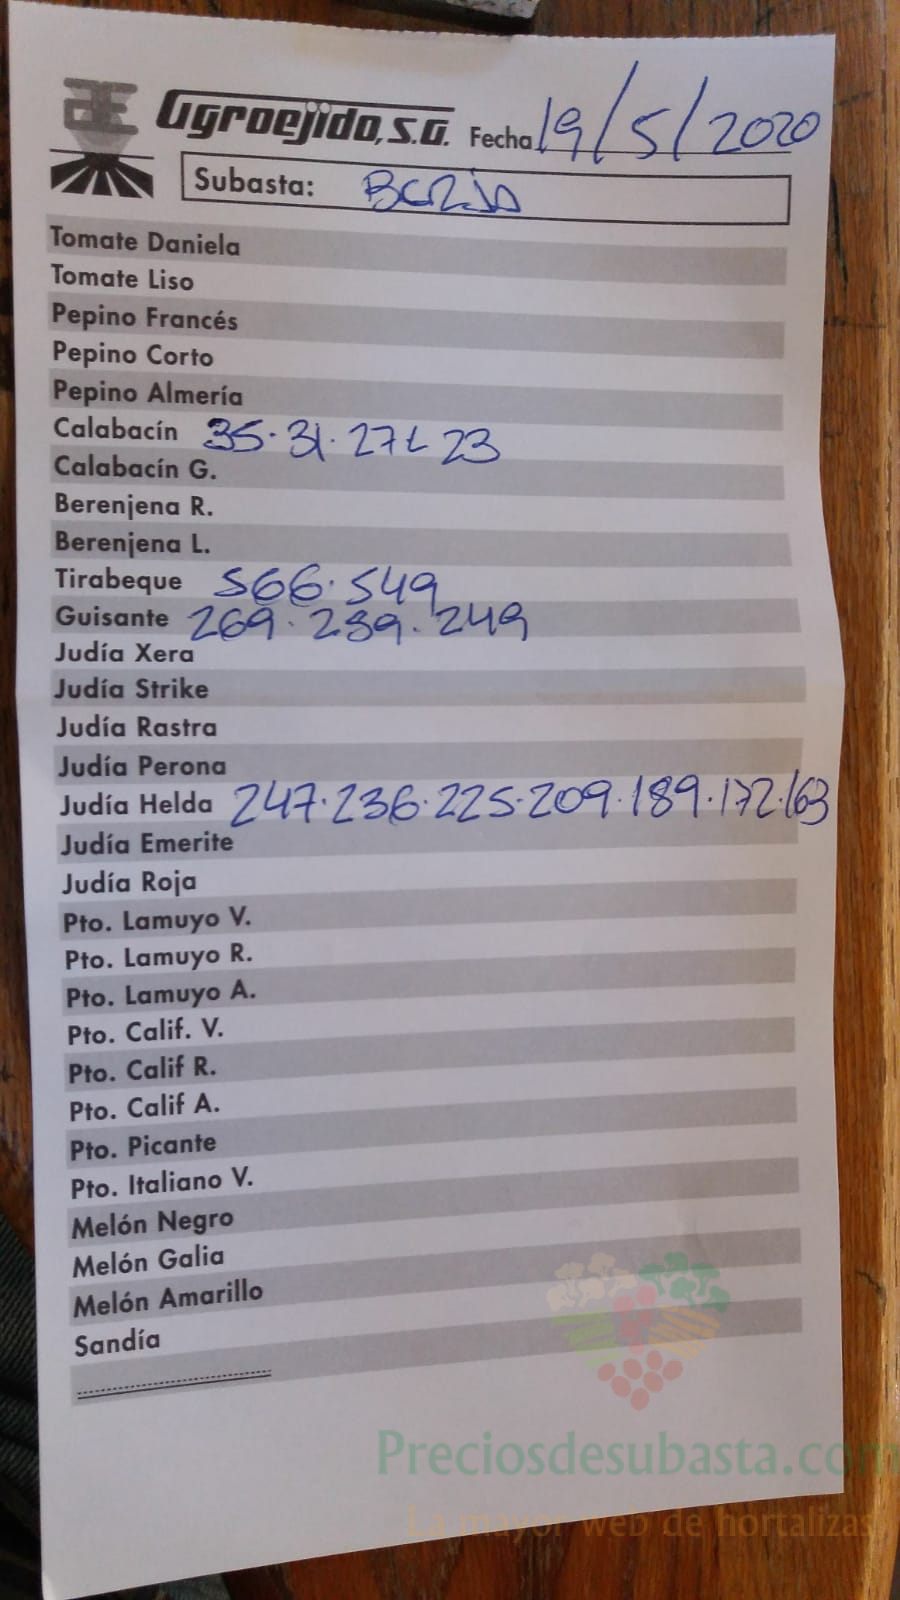 Agroejido, S.A. Fecha 19/5/2020
Subasta: Berja
Tomate Daniela
Tomate Liso
Pepino Francés
Pepino Corto
Pepino Almería
Calabacín 35.31.27 23
Calabacín G.
Berenjena R.
Berenjena L.
Tirabeque 566.549
Guisante 269.239.249
Judía Xera
Judía Strike
Judía Rastra
Judía Perona
Judía Helda 247.236.225.209.189.172.163
Judía Emerite
Judía Roja
Pto. Lamuyo V.
Pto. Lamuyo R.
Pto. Lamuyo A.
Pto. Calif. V.
Pto. Calif R.
Pto. Calif A.
Pto. Picante
Pto. Italiano V.
Melón Negro
Melón Galia
Melón Amarillo
Sandía
Preciosdesubasta.com
La mayor web de hortalizas